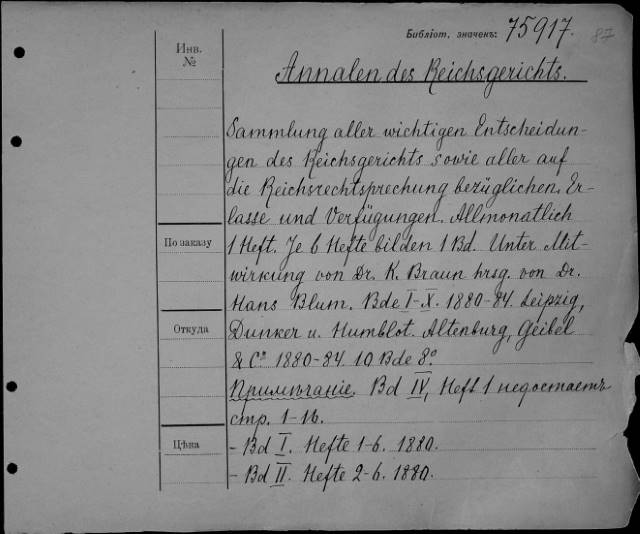 Библіот. значенъ: 75917. 87
Инв. №
Annalen des Reichsgerichts.
Sammlung aller wichtigen Entscheidun-
gen des Reichsgerichts sowie aller auf
die Reichsrechtsprechung bezüglichen Er-
lasse und Verfügungen. Allmonatlich
По заказу
1 Heft. Je 6 Hefte bilden 1 Bd. Unter Mit-
wirkung von Dr. K. Braun hrsg. von Dr.
Hans Blum. Bde I-X. 1880-84. Leipzig,
Откуда
Dunker u. Humblot. Altenburg, Geibel
& Cº 1880-84. 10 Bde 8º
Примѣчаніе. Bd IV, Heft 1 недостаетъ
стр. 1-16.
Цѣна
- Bd I. Hefte 1-6. 1880.
- Bd II. Hefte 2-6. 1880.